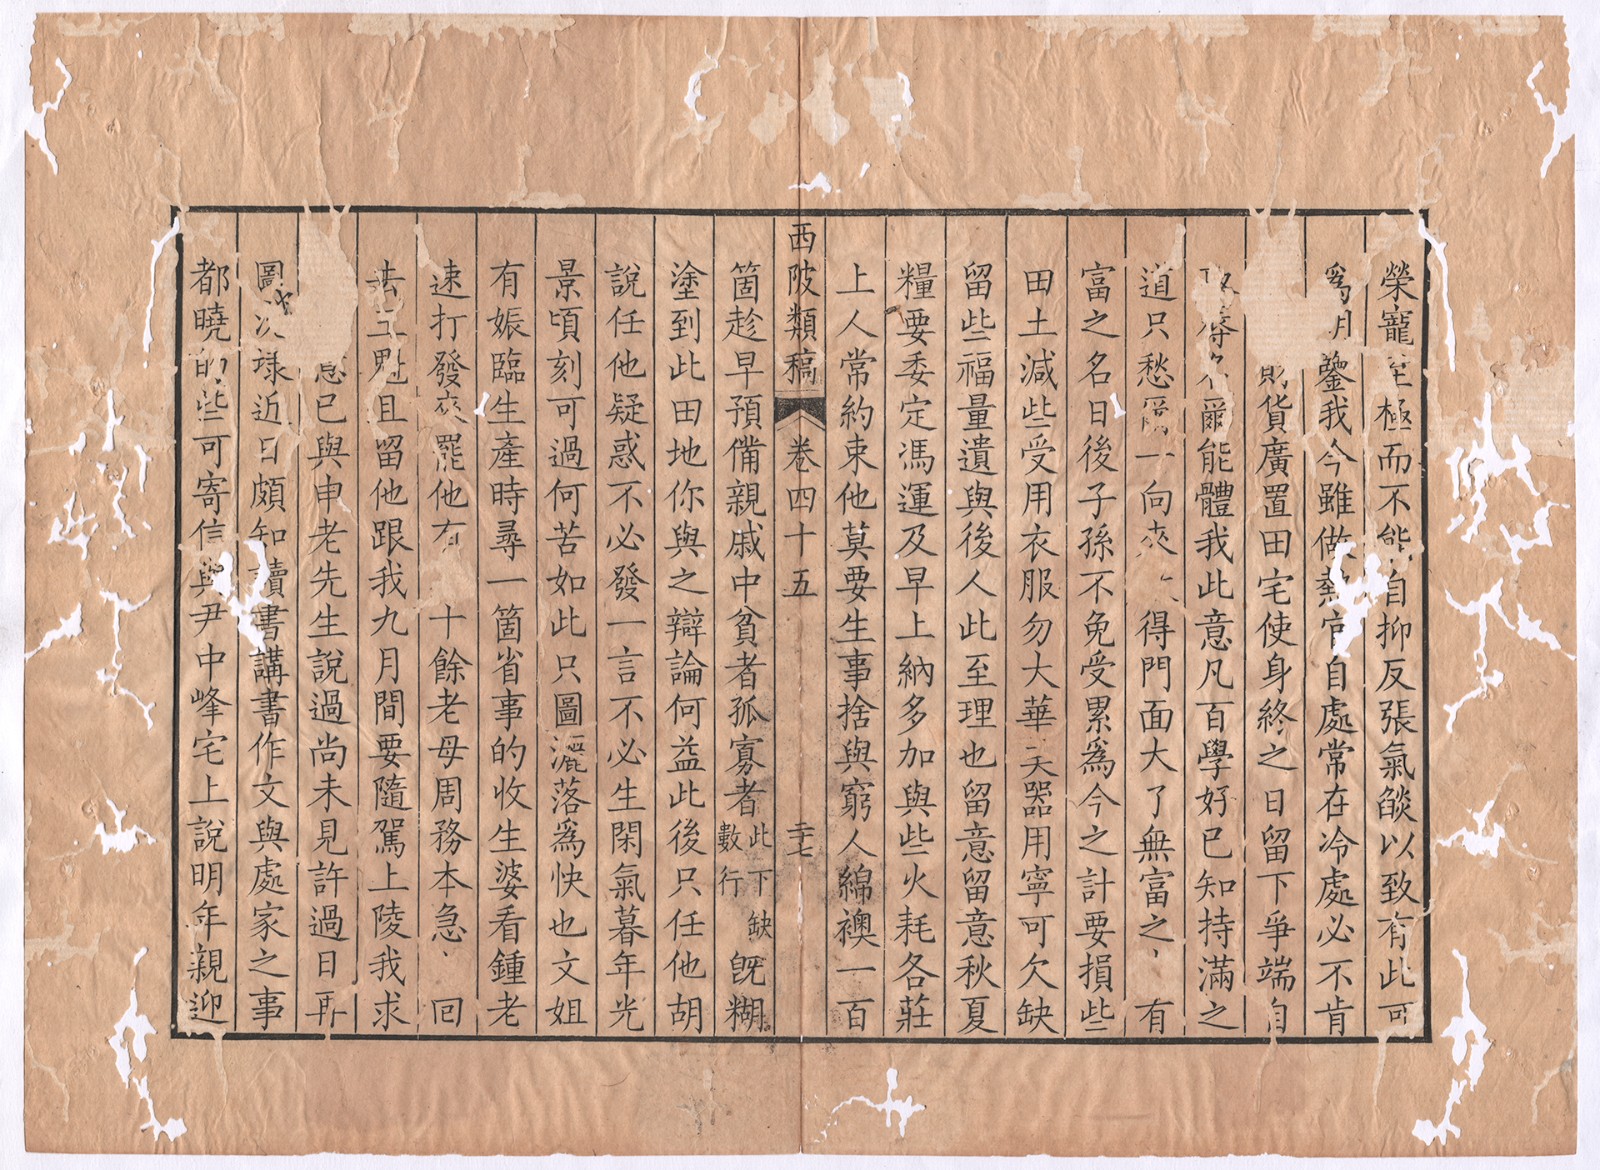 榮寵至極而不能自抑反張氣燄以致有此可
爲明鑒我今雖做熱官自處常在冷處必不肯
財貨廣置田宅使身終之日留下爭端自
爾能體我此意凡百學好已知持滿之
道只愁一向得門面大了無富之有
富之名日後子孫不免受累爲今之計要損些
田土減些受用衣服勿大華美器用寧可欠缺
留些福量遺與後人此至理也留意留意秋夏
糧要委定馮運及早上納多加與些火耗各莊
上人常約束他莫要生事捨與窮人綿襖一百
西陂類稿 卷四十五 三十七
箇趁早預備親戚中貧者孤寡者此下缺數行旣糊
塗到此田地你與之辯論何益此後只任他胡
說任他疑惑不必發一言不必生閑氣暮年光
景頃刻可過何苦如此只圖灑落爲快也文姐
有娠臨生產時尋一箇省事的收生婆看鍾老
速打發來罷他有十餘老母周務本急回
去五魁且留他跟我九月間要隨駕上陵我求
已與申老先生說過尚未見許過日再
圖近日頗知讀書講書作文與處家之事
都曉的些可寄信與尹中峰宅上說明年親迎